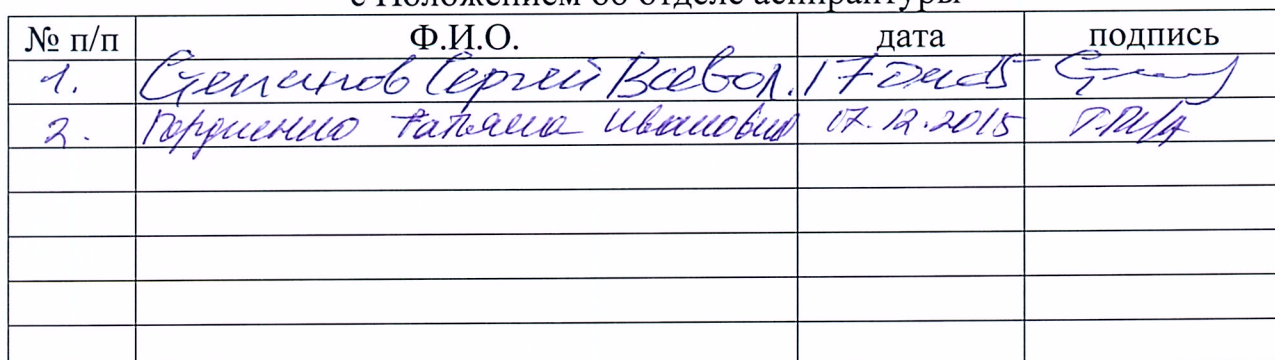 с Положением об отделе аспирантуры
№ п/п Ф.И.О. дата подпись
1. Степанов Сергей Всевол.
2. Гордиенко Татьяна Ивановна 07.12.2015